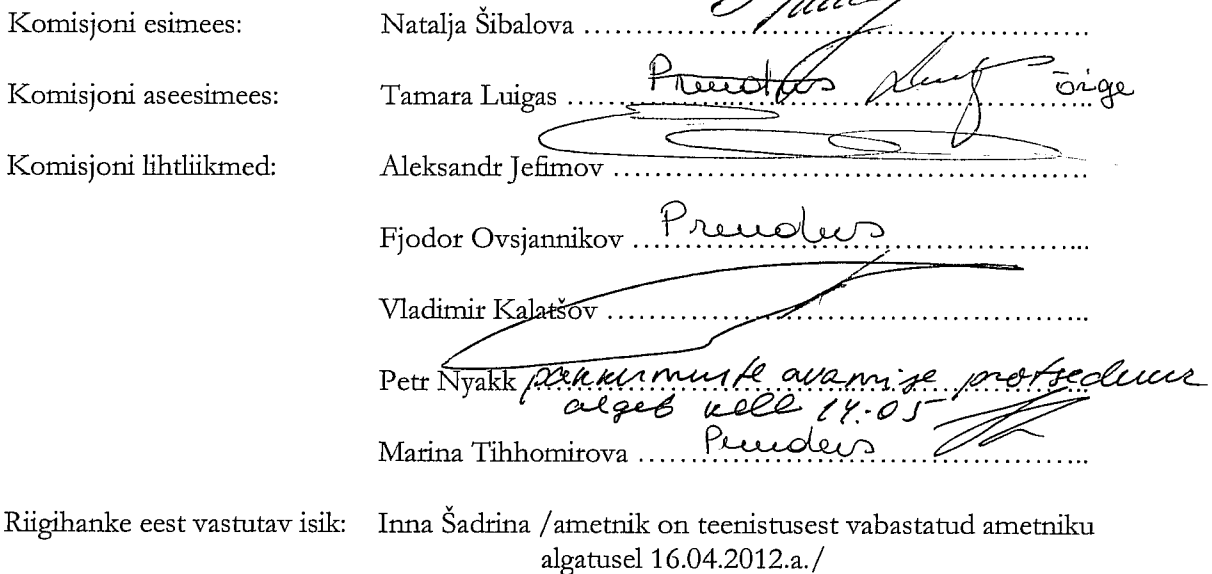 Komisjoni esimees: Natalja Šibalova ...........................................................
Komisjoni aseesimees: Tamara Luigas ..... Puudus ..................... õige
Komisjoni lihtliikmed: Aleksandr Jefimov ......................................................
Fjodor Ovsjannikov .... Puudus ............................
Vladimir Kalatšov ......................................................
Petr Nyakk pakkumuste avamise protseduur
algab kell 14.05
Marina Tihhomirova ........ Puudus ............................
Riigihanke eest vastutav isik: Inna Šadrina /ametnik on teenistusest vabastatud ametniku
algatusel 16.04.2012.a./